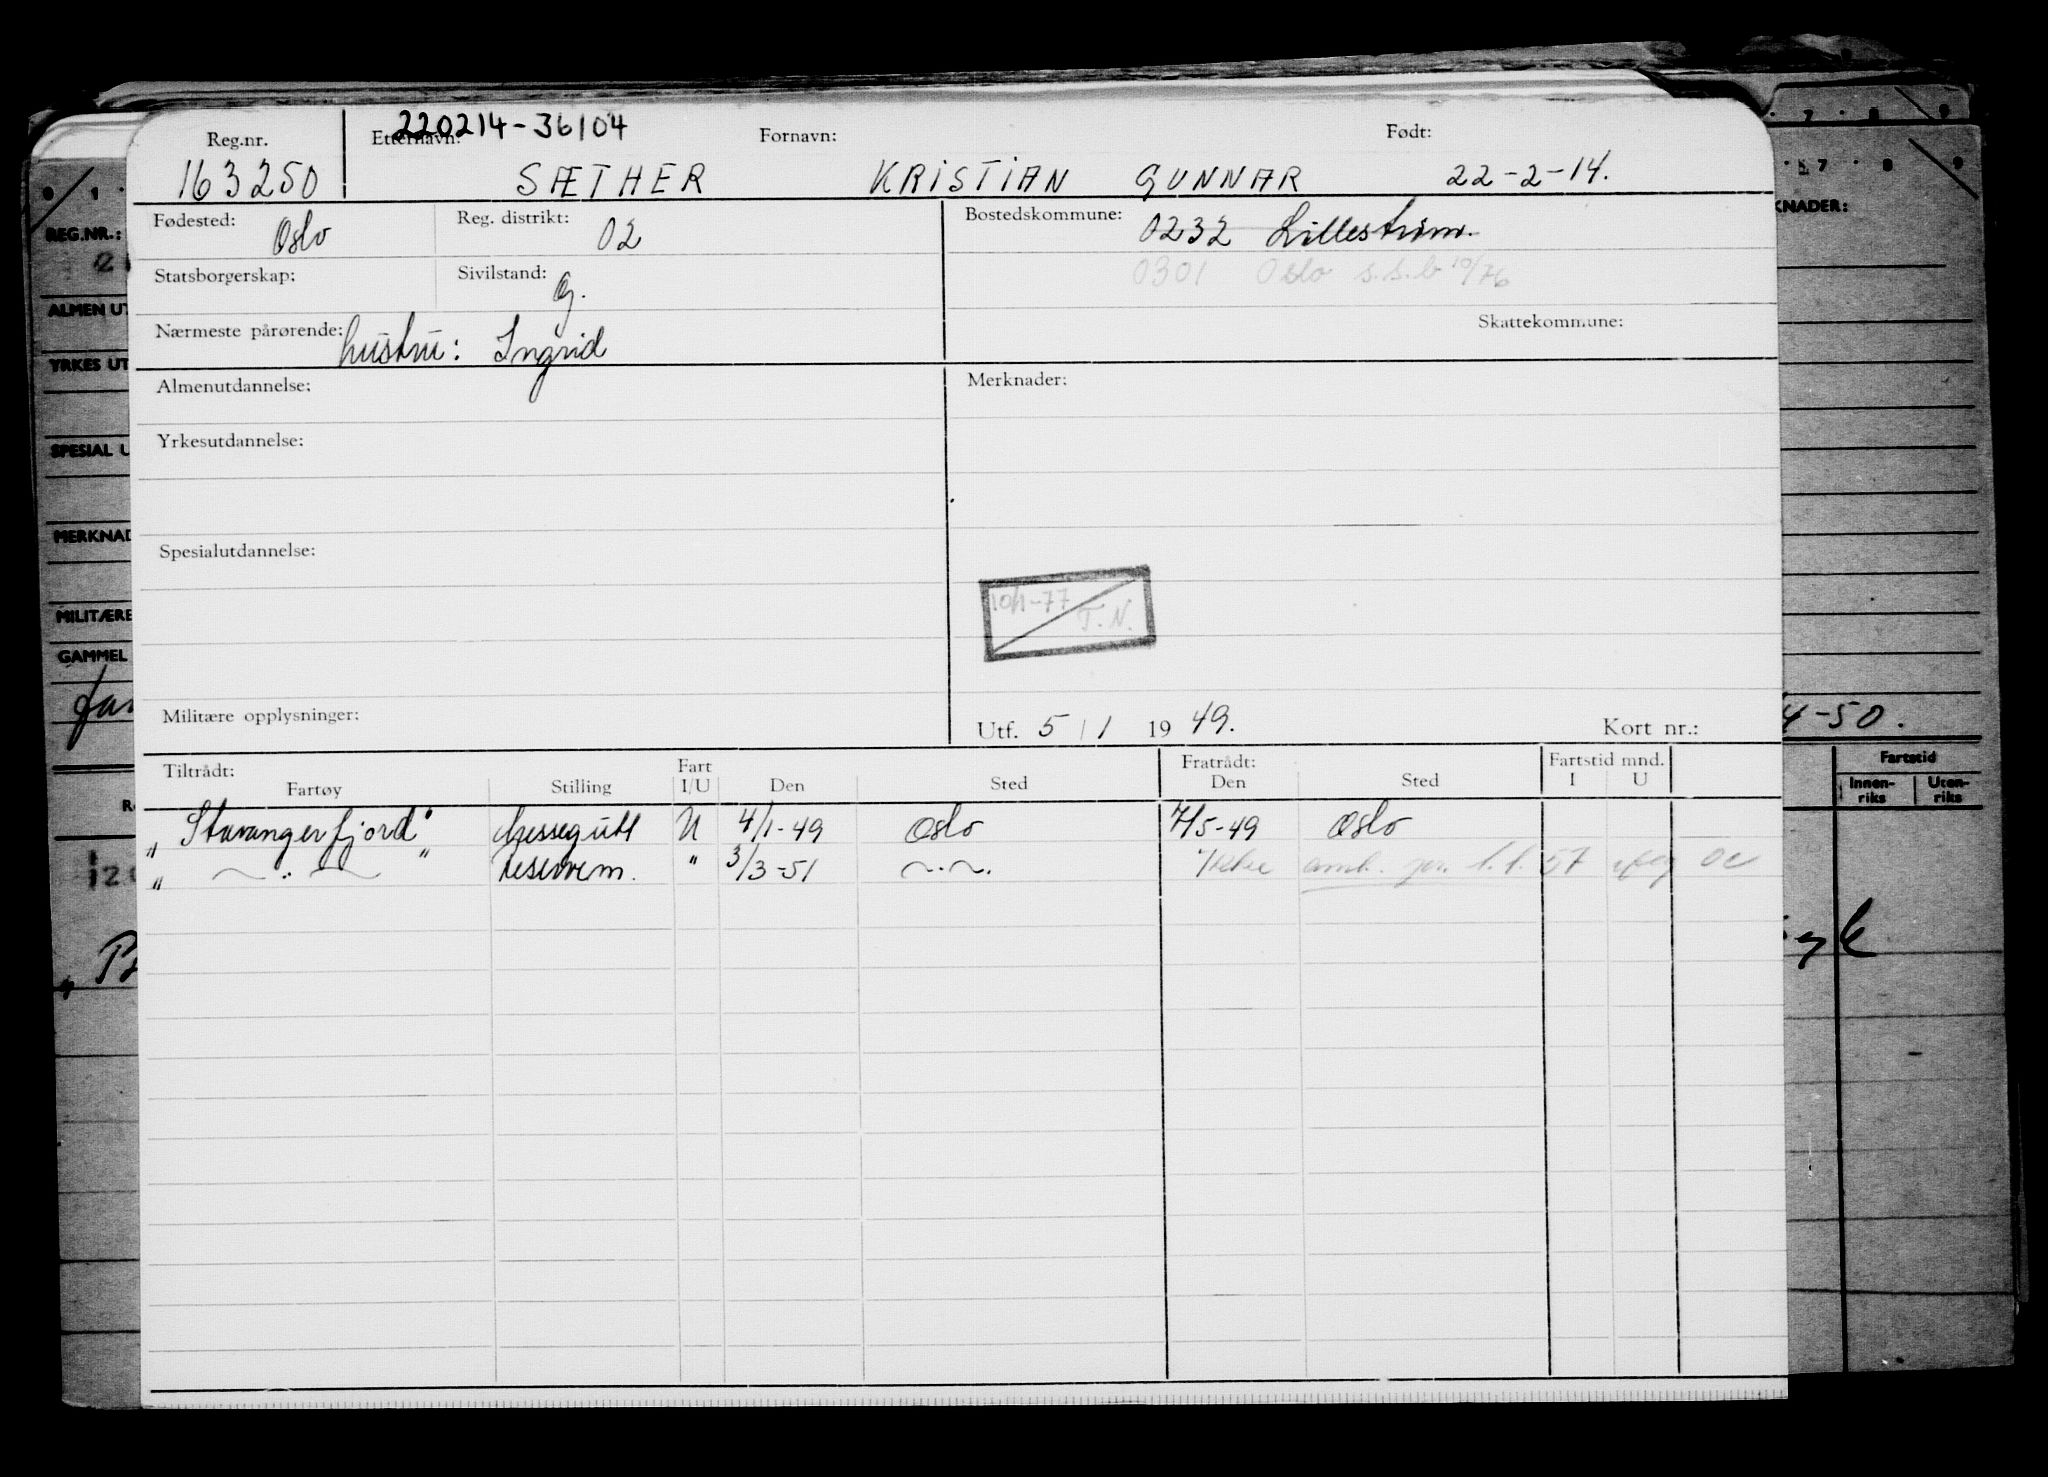 Reg.nr. Etternavn: 220214-36104 Fornavn: Født:
163250 SÆTHER KRISTIAN GUNNAR 22-2-14.
Fødested: Oslo Reg. distrikt: 02 Bostedskommune: 0232 Lillestrøm.
Statsborgerskap: Sivilstand: g. 0301 Oslo s.s.b 10/76
Nærmeste pårørende: hustru: Ingrid Skattekommune:
Almenutdannelse: Merknader:
Yrkesutdannelse:
Spesialutdannelse:
10/1-77 T.N.
Militære opplysninger: Utf. 5/1 1949. Kort nr.:
Tiltrådt: Fart Fratrådt: Fartstid mnd.
Fartøy Stilling I/U Den Sted Den Sted I U
"Stavangerfjord" Messegutt U 4/1-49 Oslo 7/5-49 Oslo
" ~.~ " reservem. " 3/3-51 ~.~.
REG.NR.:
ALMEN UT
YRKES UT
SPESIAL U
MERKNAD
MILITÆRE
GAMMEL
KNADER:
4-50.
Fartstid
Innen-riks Uten-riks